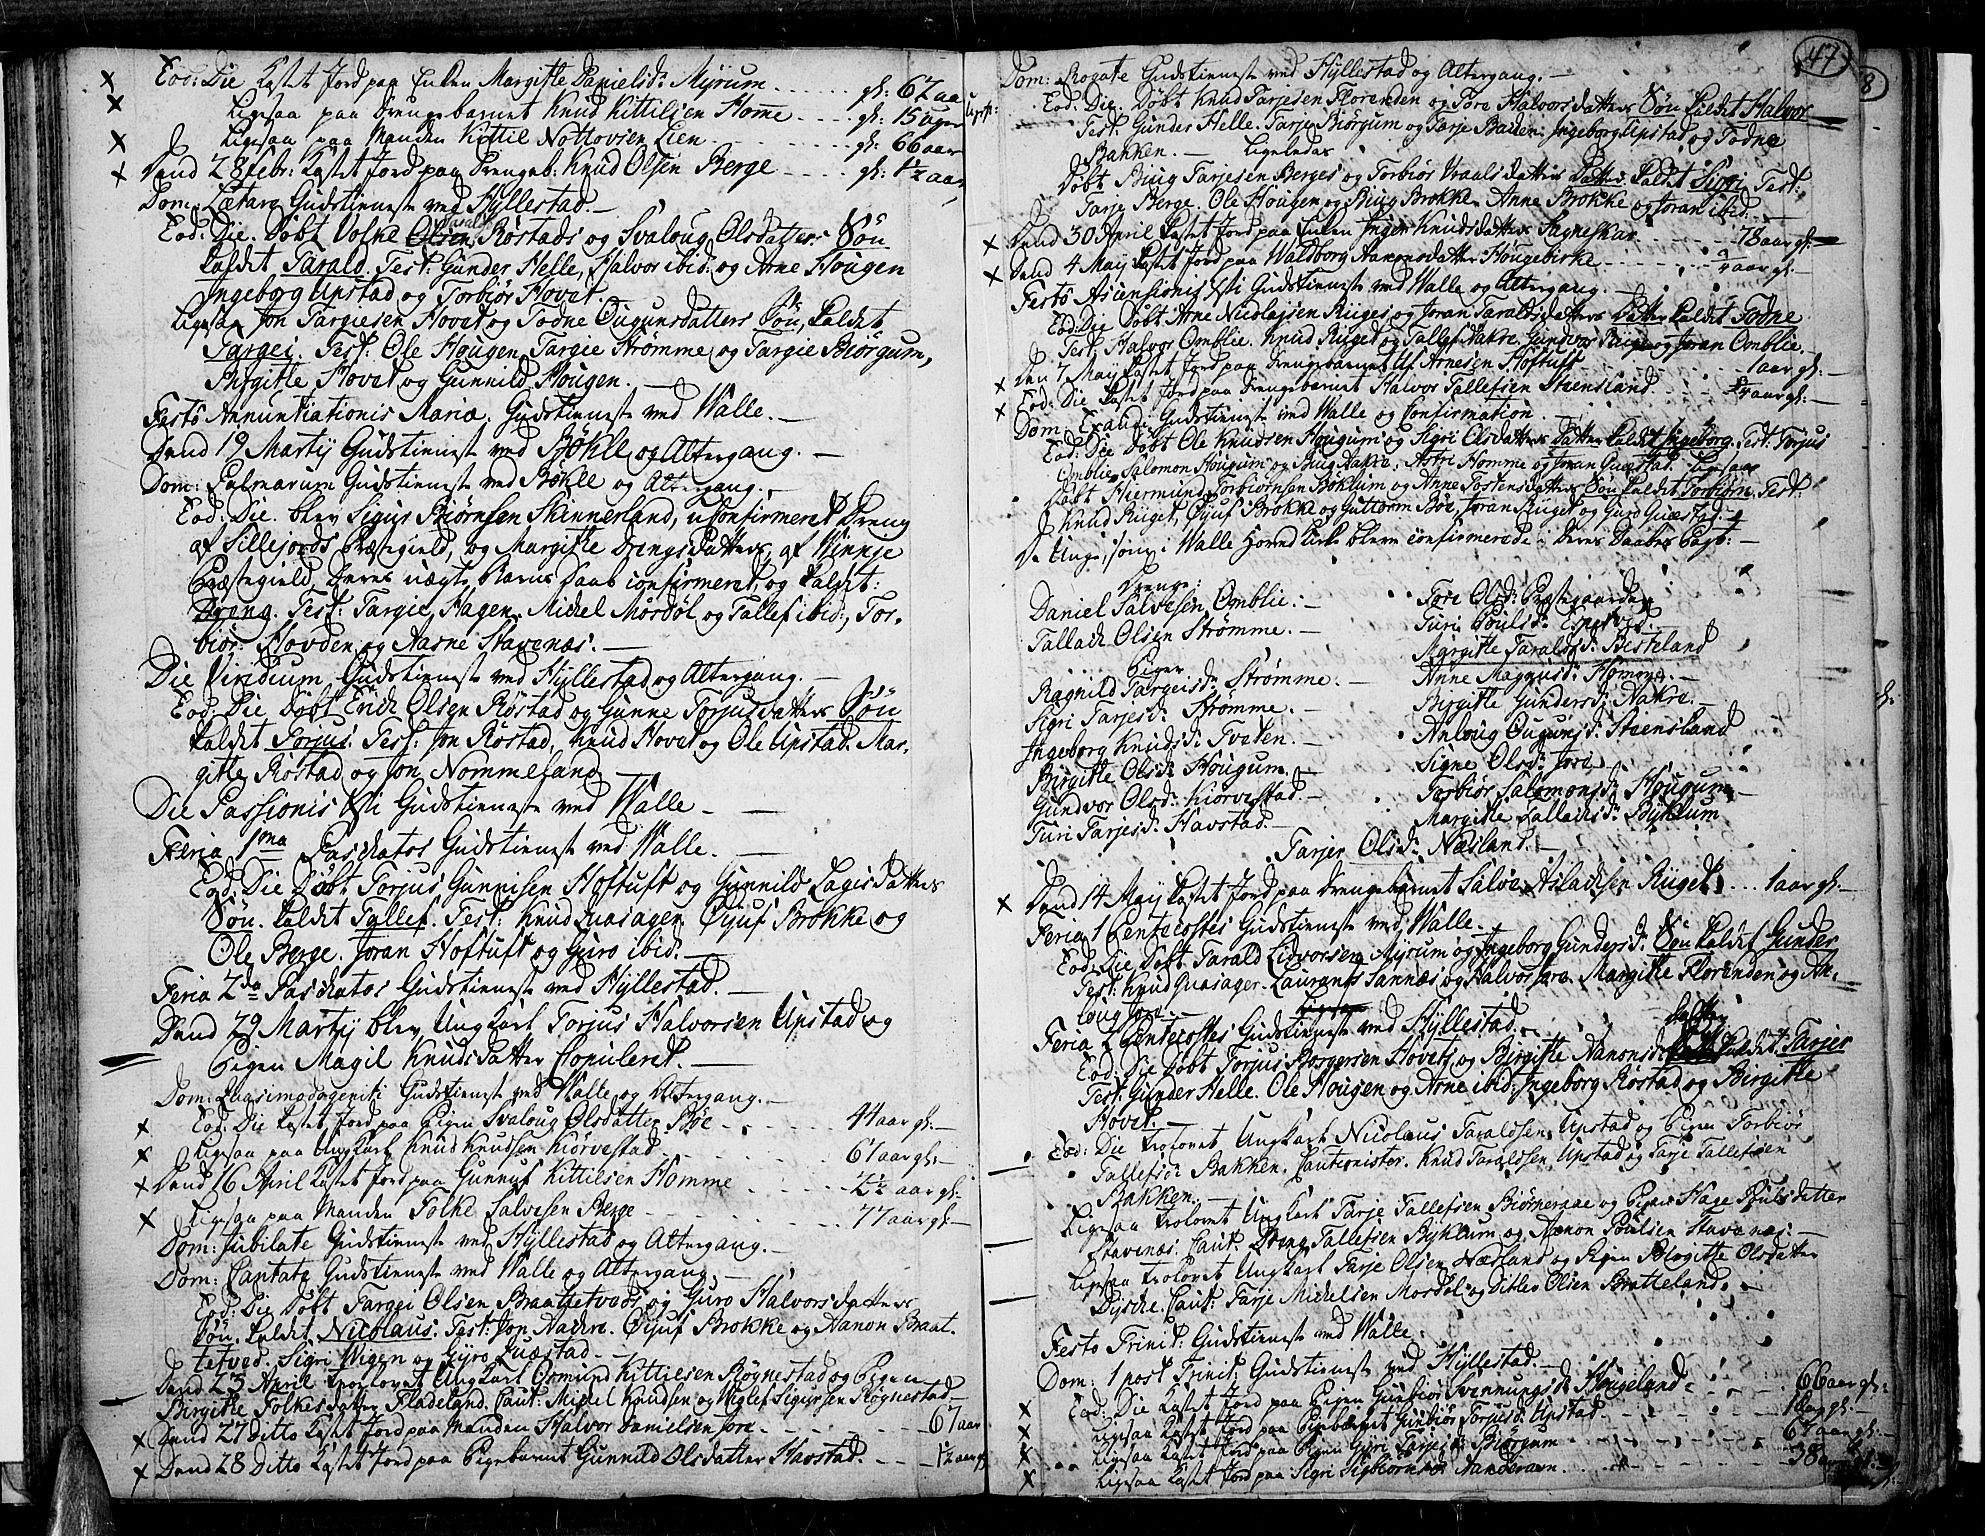 Eod: Die Kastet Jord paa Enken Margitte Danielsd: Myrum . . . . . gl: 67 aar
Ligesaa paa Drengebarnet Knud Kittilsen Homme . . . . gl: 15 uger
Ligesaa paa Manden Kittil Nottovsen Lien . . . . . gl: 66 aar
Dend 28 Febr: Kastet Jord paa Drengeb: Knud Olsen Berge . . . . gl: 1½ aar
Dom: Lætare Gudstieneste ved Hyllestad. —
Eod: Die. Døbt Volke Olsen Røstads og Svaloug Olsdatters Søn
kaldet Tarald. Test: Gunder Helle, Halvor ibid: og Arne Hougen
Ingeborg Upstad og Torbiør Hovet.
Ligesaa Jon Targiesen Hovet og Todne Ougunsdatters Søn, kaldet
Targei. Test: Ole Hougen, Targie Strømme og Targie Biørgum,
Birgitte Hovet og Gunnild Hougen. —
Festo Annuntiationis Mariæ. Gudstieneste ved Walle. —
Dend 19 Martij Gudstieneste ved Bøkle og Altergang. —
Dom: Palmarum Gudstieneste ved Bøkle og Altergang. —
Eod: Die. blev Sigus Biørnsen Skinnerland, uConfirmeret Dreng
af Sillejords Præstegield, og Margitte Drengsdatters af Winnje
Præstegield, Deres uægte Barns Daab confirmeret, og kaldet:
Dreng. Test: Targie Hagen, Michel Mordøl og Tallef ibid:, Tor-
biør Hovden og Aasne Stavenæs. —
Die Viridium Gudstieneste ved Hyllestad og Altergang. —
Eod: Die Døbt Erich Olsen Røstad og Gunne Torjusdatters Søn
kaldet Torjus. Test: Jon Røstad, Knud Hovet og Ole Upstad. Mar-
gitte Røstad og Jon Nommeland
Die Passionis Xsti Gudstieneste ved Walle —
Feria 1ma Paschatos Gudstieneste ved Walle. —
Eod: Die Døbt Torjus Gunnisen Hoftuft og Gunnild Lagesdatters
Søn. kaldet Tallef. Test: Knud Quasager, Øyuf Brokke og
Ole Berge. Joran Hoftuft og Guro ibid. —
Feria 2da Paschatos Gudstieneste ved Hyllestad. —
Dend 29 Martij blev Ungkarl Torjus Halvorsen Upstad og
Pigen Magil Knudsdatter Copuleret. —
Dom: Quasimodogeniti Gudstieneste ved Walle og Altergang. —
Eod: Die Kastet Jord paa Pigen Svaloug Olsdatter Bøe . . . . 44 aar gl: —
Ligesaa paa Ungkarl Knud Knudsen Kiørvestad . . . . 61 aar gl: —
Dend 16 April Kastet Jord paa Gunnuf Kittilsen Homme . . . . 2½ aar gl: —
Ligesaa paa Manden Folke Salvesen Berge . . . . 77 aar gl: —
Dom: Jubilate Gudstieneste ved Hyllestad og Altergang. —
Dom: Cantate Gudstieneste ved Walle og Altergang. —
Eod: Die Døbt Targei Olsen Braattetveds og Guro Halvorsdatters
Søn. kaldet Nicolaus. Test: Jon Aachre. Øyuf Brokke og Aanon Braat-
tetved. Sigri Wigen og Gyro Quæstad. —
Dend 23 April trolovet Ungkarl Osmund Kittilsen Røgnestad og Pigen
Birgitte Folkesdatter Fladeland. Caut: Michel Knudsen og Wiglef Sigursen Røgnestad —
Dend 27 Ditto Kastet Jord paa Manden Halvor Danielsen Jore . . . . 67 aar
Dend 28 Ditto Kastet Jord paa Pigebarnet Gunnild Olsdatter Havstad. . . . 1½ aar gl:
47
8
Dom: Rogate Gudstieneste ved Hyllestad og Altergang. —
Eod. Die. Døbt Knud Tarjesen Florenden og Tore Halvorsdatters Søn kaldet Halvor
Test: Gunder Helle. Tarje Biørgum og Tarje Bakken. Ingeborg Upstad og Todne
Bakken. — Ligeledes
Døbt Biug Tarjesen Berges og Torbiør Vraalsdatters Datter kaldet Sigri. Test:
Tarje Berge. Ole Hougen og Biug Brokke. Anne Brokke og Joran ibid. —
Dend 30 April Kastet Jord paa Enken Inger Knudsdatter Sagneskar . . . 78 aar gl: —
Dend 4 Maij Kastet Jord paa Waldborg Aanonsdatter Hougebirke . . . . aar gl: —
Festo Ascensionis Xsti Gudstieneste ved Walle og Altergang. —
Eod: Die Døbt Arne Nicolajsen Riiges og Joran Taraldsdatters Datter kaldet Todne
Test: Halvor Omblie. Knud Riiget og Tallef Aakre. Gundvor Riige og Joran Omblie. —
Den 7 Maij Kastet Jord paa Drengebarnet Ulf Arnesen Hoftuft . . . 1 aar gl: —
Eod: Die Kastet Jord paa Drengebarnet Halvor Tallefsen Steensland . . . . aar gl: —
Dom: Exaudi Gudstieneste ved Walle og Confirmation. —
Eod: Die Døbt Ole Knudsen Hougum og Sigri Olsdatters Datter kaldet Ingeborg. Test: Torjus
Omblie, Salomon Hougum og Biug Aakre. Astri Homme og Joran Quæstad. Ligesaa
Døbt Hiermund Torbiørnsen Bøklum og Anne Tostensdatters Søn kaldet Torbiørn. Test:
Knud Riiget, Øyuf Brokke og Guttorm Bøe, Joran Riiget og Guro Quæstad. —
De Unge, som i Walle Hoved Kirke bleve confirmerede i Deres Daabes Pagt: —
Drenge:
Daniel Salvesen Omblie. —
Tallach Olsen Strømme. —
Piger
Ragnild Targeisd: Strømme. —
Sigri Tarjesd: Strømme. —
Ingeborg Knudsd: Tveten. —
Birgitte Olsd: Hougum. —
Gundvor Olsd: Kiørvestad. —
Turi Tarjesd: Havstad. —
Tore Olsd: Præstegaarden
Turi Poulsd: Espetved. —
Margitte Taraldsd: Besteland
Anne Magnusd: Homme. —
Birgitte Gundersd: Aakre. —
Anloug Ougunsd: Steensland
Signe Olsd: Jore.
Torbiør Salomonsd: Hougum —
Margitte Tallachsd: Bøklum
Tarjer Olsd: Næsland. —
Dend 14 Maij Kastet Jord paa Drengebarnet Salve Aslachsen Riiget . . . 1 aar gl: —
Feria 1 Pentecostes Gudstieneste ved Walle.
Eod: Die Døbt Tarald Lidvorsen Myrum og Ingeborg Gundersd: Søn kaldet Gunder
Test: Knud Quasager. Laurants Sannæs og Halvor Jore. Margitte Florenden og An-
loug Jore. —
Feria 2 Pentecostes Gudstieneste ved Hyllestad. —
Datter
Eod: Die Døbt Torjus Borgersen Hovets og Birgitte Aanonsd: kaldet Tarjer
Test: Gunder Helle. Ole Hougen og Arne ibid: Ingeborg Røstad og Birgitte
Hovet. —
Eod: Die trolovet Ungkarl Nicolaus Taraldsen Upstad og Pigen Torbiør
Tallefsd: Bakken. Cautionister. Knud Taraldsen Upstad og Tarje Tallefsen
Bakken. —
Ligesaa trolovet Ungkarl Tarje Tallefsen Biørneraae og Pigen Hage Poulsdatter
Stavenæs. Caut: Dreng Tallefsen Byklum og Aanon Poulsen Stavenæs. —
Ligesaa trolovet Ungkarl Tarje Olsen Næsland og Pigen Birgitte Olsdatter
Dysche. Caut: Tarje Michelsen Mordøl og Ditlev Olsen Bratteland. —
Festo Trinit: Gudstieneste ved Walle.
Dom: 1 post Trinit: Gudstieneste ved Hyllestad. —
Eod: Die Kastet Jord paa Pigen Gunbiør Svenningsd: Hougeland . . . 66 aar gl: —
Ligesaa Kastet Jord paa Pigebarnet Gunbiør Torjusd: Upstad . . . 1 Dag gl: —
Ligesaa Kastet Jord paa Pigen Gyro Tarjesd: Biørgum . . . 67 aar gl: —
Ligesaa Kastet Jord paa Sigri Sigbiørnsd: Sanderaaen. . . . 38 aar gl: